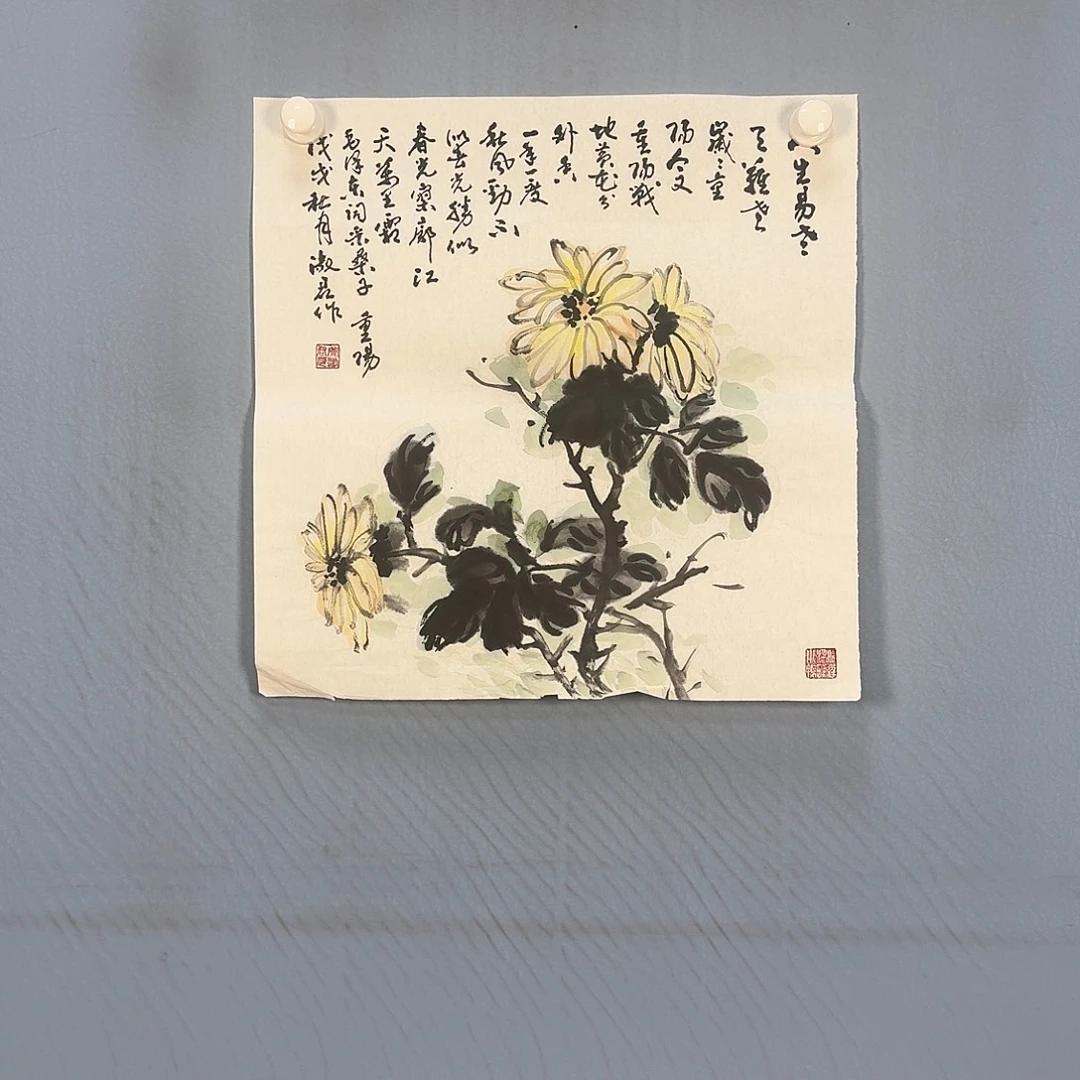 人生易老
天難老
歲々重
陽今又
重陽戰
地黄花分
外香
一年一度
秋風勁不
似春光勝似
春光寥廓江
天萬里霜
毛泽东词采桑子 重陽
戊戌秋月淑君作